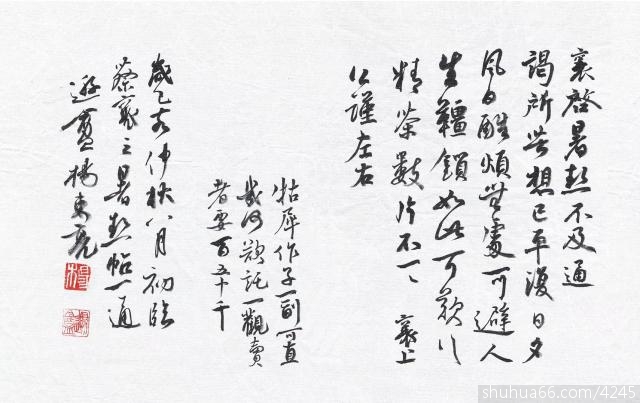 襄啓暑熱不及通
謁所苦想已平復日夕
風日酷煩無處可避人
生韁鎖如此可歎
精茶數片不一一 襄上
公謹左右
牯犀作子一副可直
幾何欲託一觀賣
者要百五十千
歲己亥仲秋八月初臨
蔡襄之暑熱帖一通
楊東亮
shuhua66.com/4245